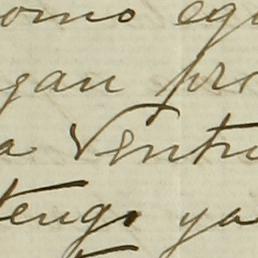 omo equ
gan pre
a Ventu
tengo ya